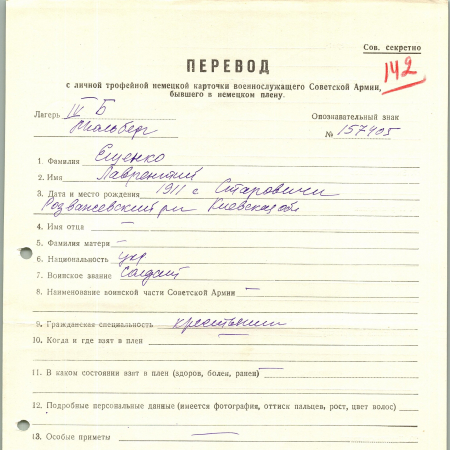 Сов. секретно
142
ПЕРЕВОД
с личной трофейной немецкой карточки военнослужащего Советской Армии,
бывшего в немецком плену.
Лагерь IV Б
Мюльберг
Опознавательный знак
№ 157405
1. Фамилия Ещенко
2. Имя Лаврентий
3. Дата и место рождения 1911 г Старовичи
Розважевский р-н Киевская обл
4. Имя отца —
5. Фамилия матери —
6. Национальность укр
7. Воинское звание Солдат
8. Наименование воинской части Советской Армии —
9. Гражданская специальность крестьянин
10. Когда и где взят в плен —
11. В каком состоянии взят в плен (здоров, болен, ранен) —
12. Подробные персональные данные (имеется фотография, оттиск пальцев, рост, цвет волос)
13. Особые приметы —